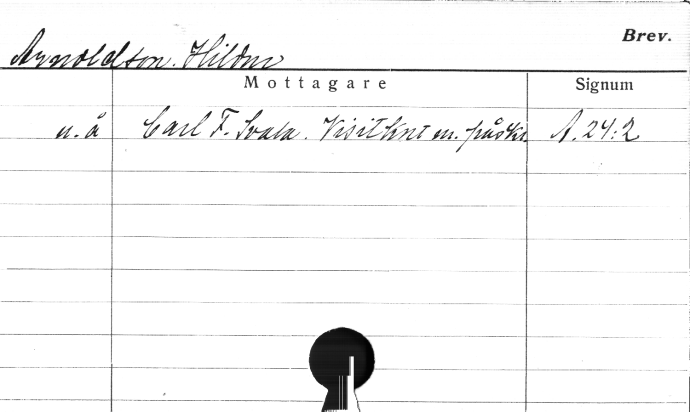 Brev.
Arnoldson. Hildur
Mottagare Signum
u. å Carl F. Svala. Visitkort m. påskr. A. 24:2